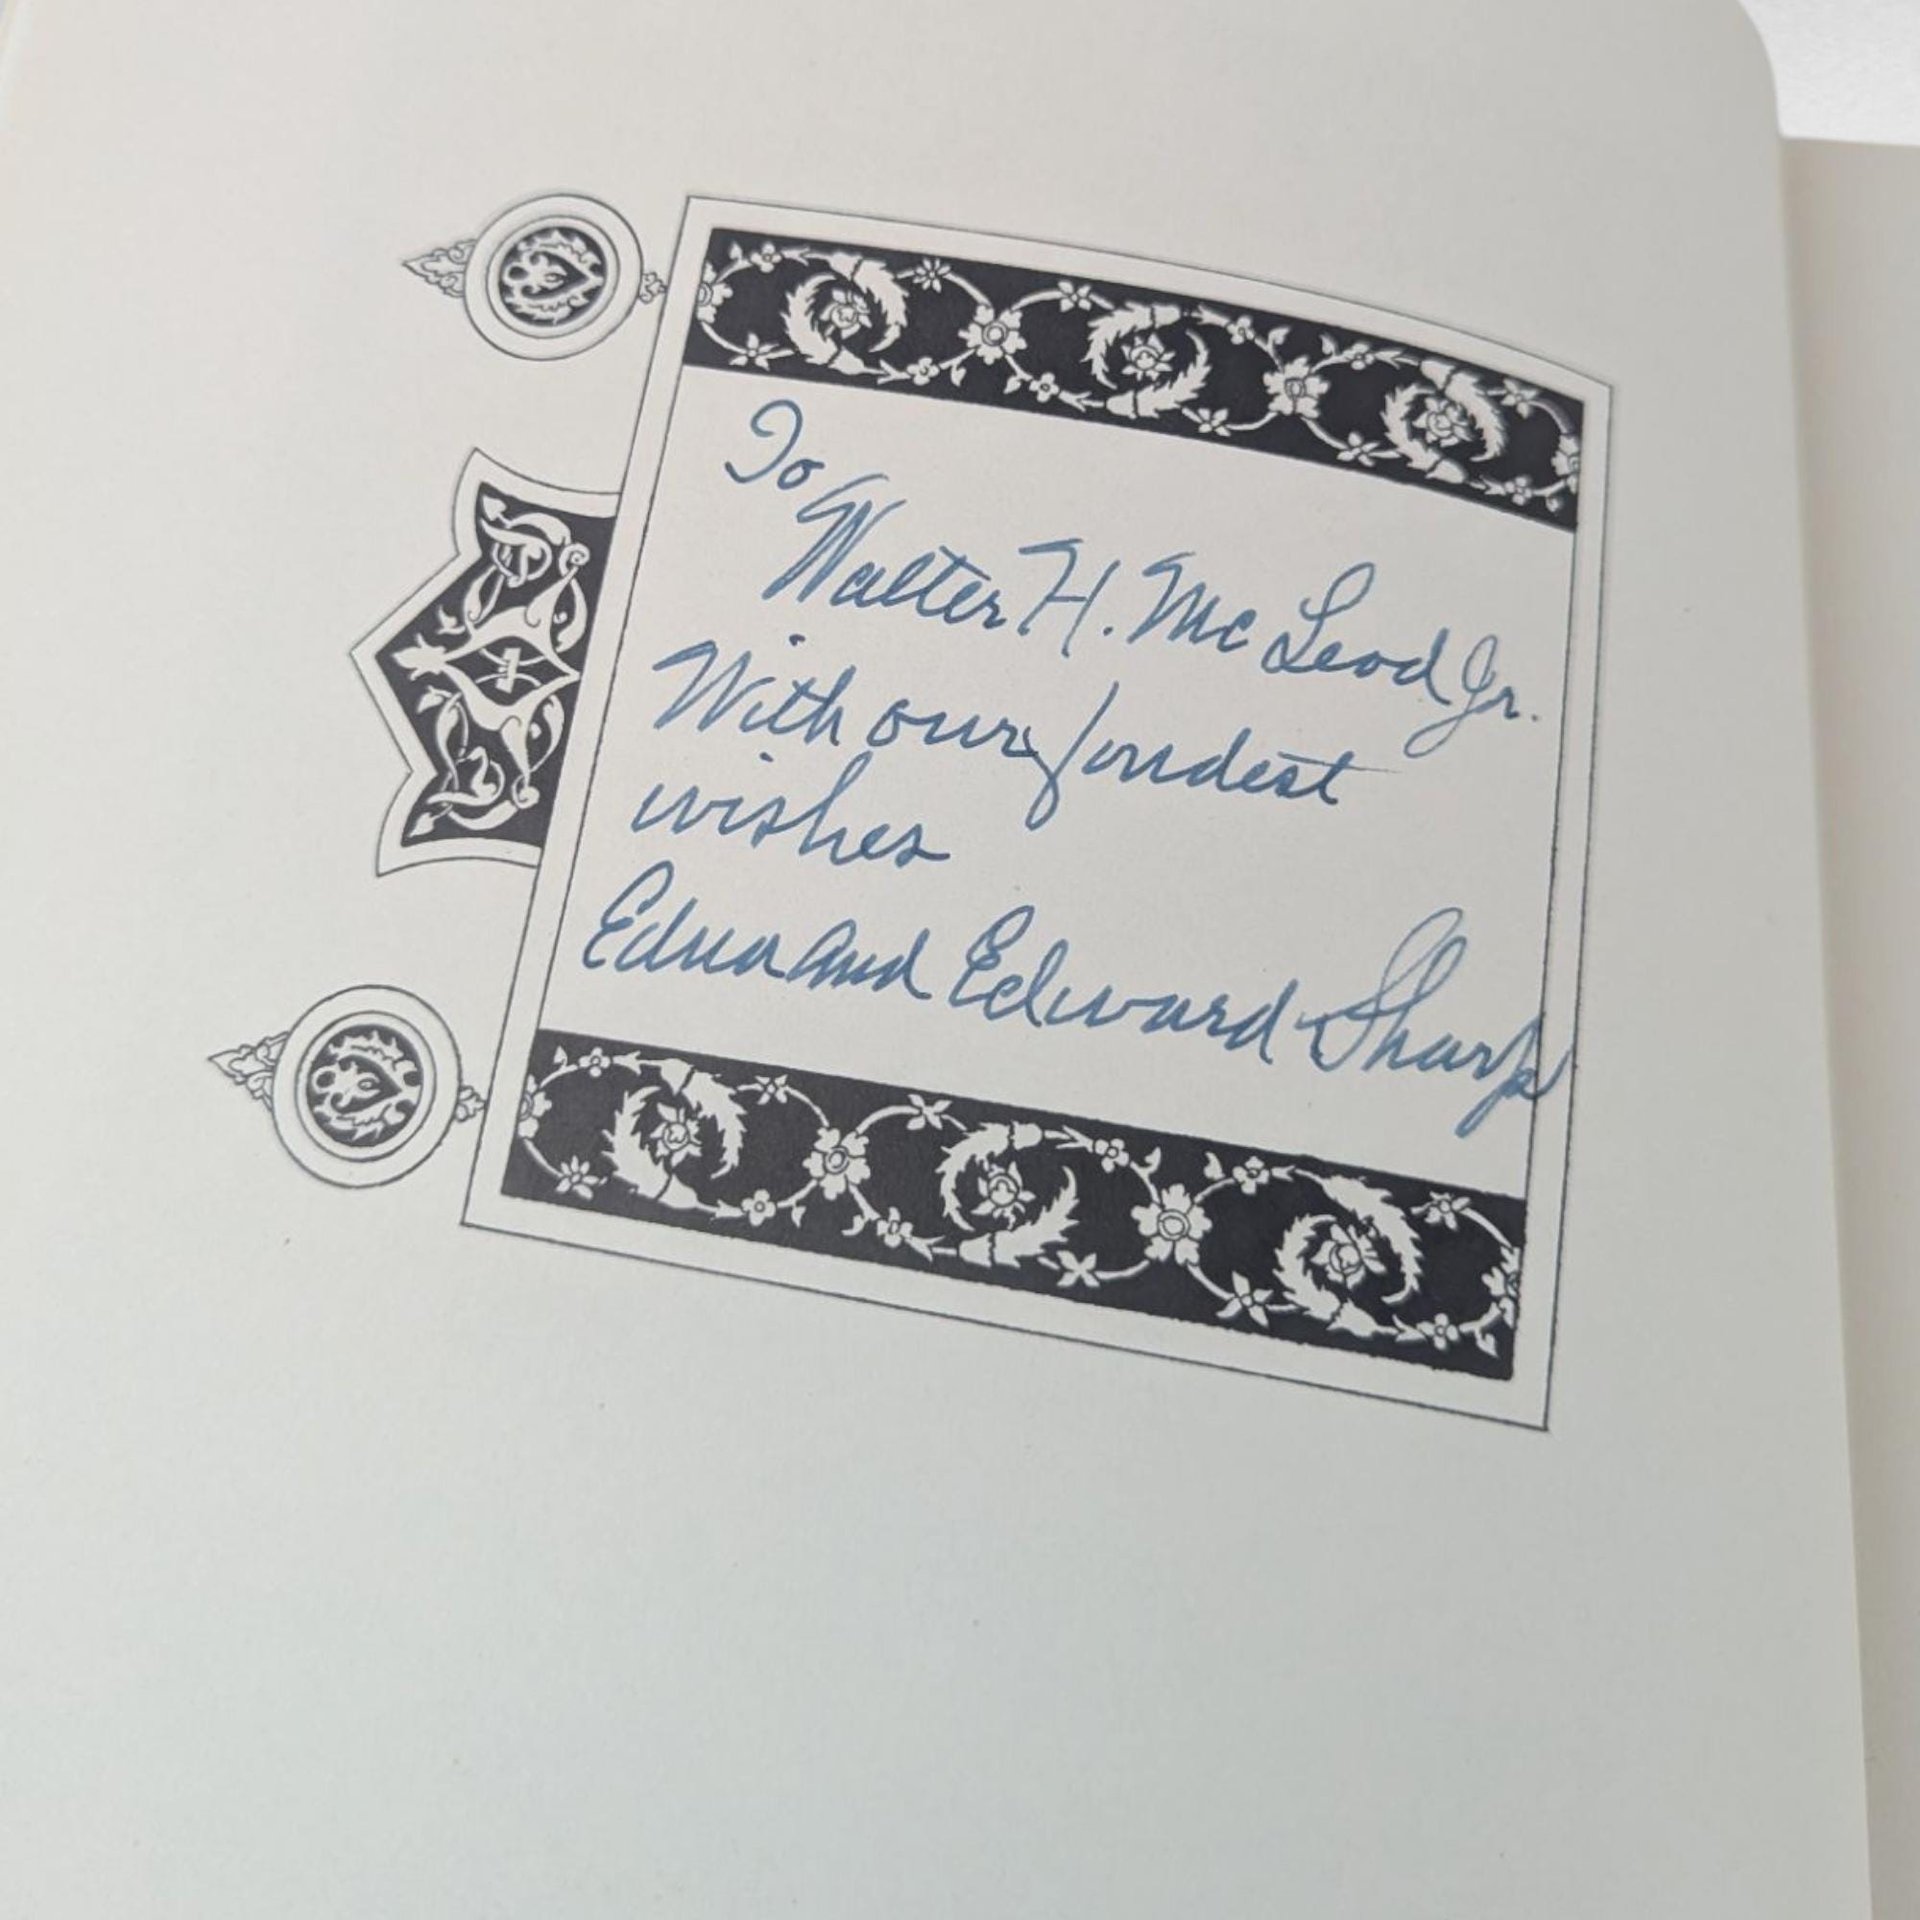 To
Walter H. Mc Leod Jr.
With our fondest
wishes
Edna and Edward Sharp